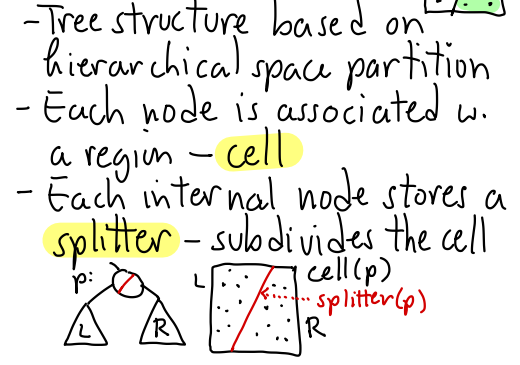 -Tree structure based on
hierarchical space partition
- Each node is associated w.
a region - cell
- Each internal node stores a
splitter - subdivides the cell
p:
L
R
L
cell(p)
splitter(p)
R